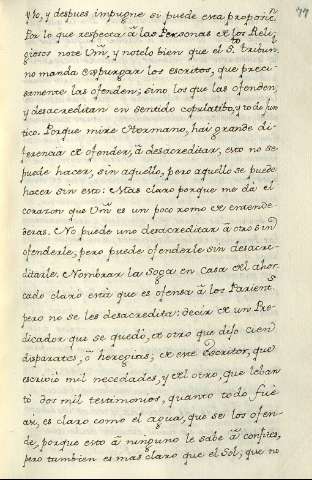 77
yo, y despues impugne si puede esta proposic.n
Por lo que respecta â las Personas de los Reli-
giosos note Vm̃, y notelo bien que el S.to tribun.
no manda expurgar los escritos, que preci-
samente las ofenden, sino los que las ofenden,
y desacreditan en sentido copulatibo, y todo jun-
tico. Porque mire Hermano, hai grande di-
ferencia de ofender, â desacreditar, esto no se
puede hacer, sin aquello, pero aquello se puede
hacer sin esto: Mas claro porque me dá el
corazon que Vm̃ es un poco romo de entende-
deras. No puede uno desacreditar â otro sin
ofenderle; pero puede ofenderle sin desacre-
ditarle. Nombrar la Soga en Casa del ahor-
cado claro está que es ofensa â los Parient.s
pero no se les desacredita: decir de un Pre-
dicador que se quedò, de otro que dijo cien
disparates, ô heregias; de este Escritor, que
escriviò mil necedades, y del otro, que leban-
tò dos mil testimonios, quanto todo fuè
asi, es claro como el agua, que se los ofen-
de, porque esto â ninguno le sabe â confites,
pero tambien es mas claro que el Sol, que no